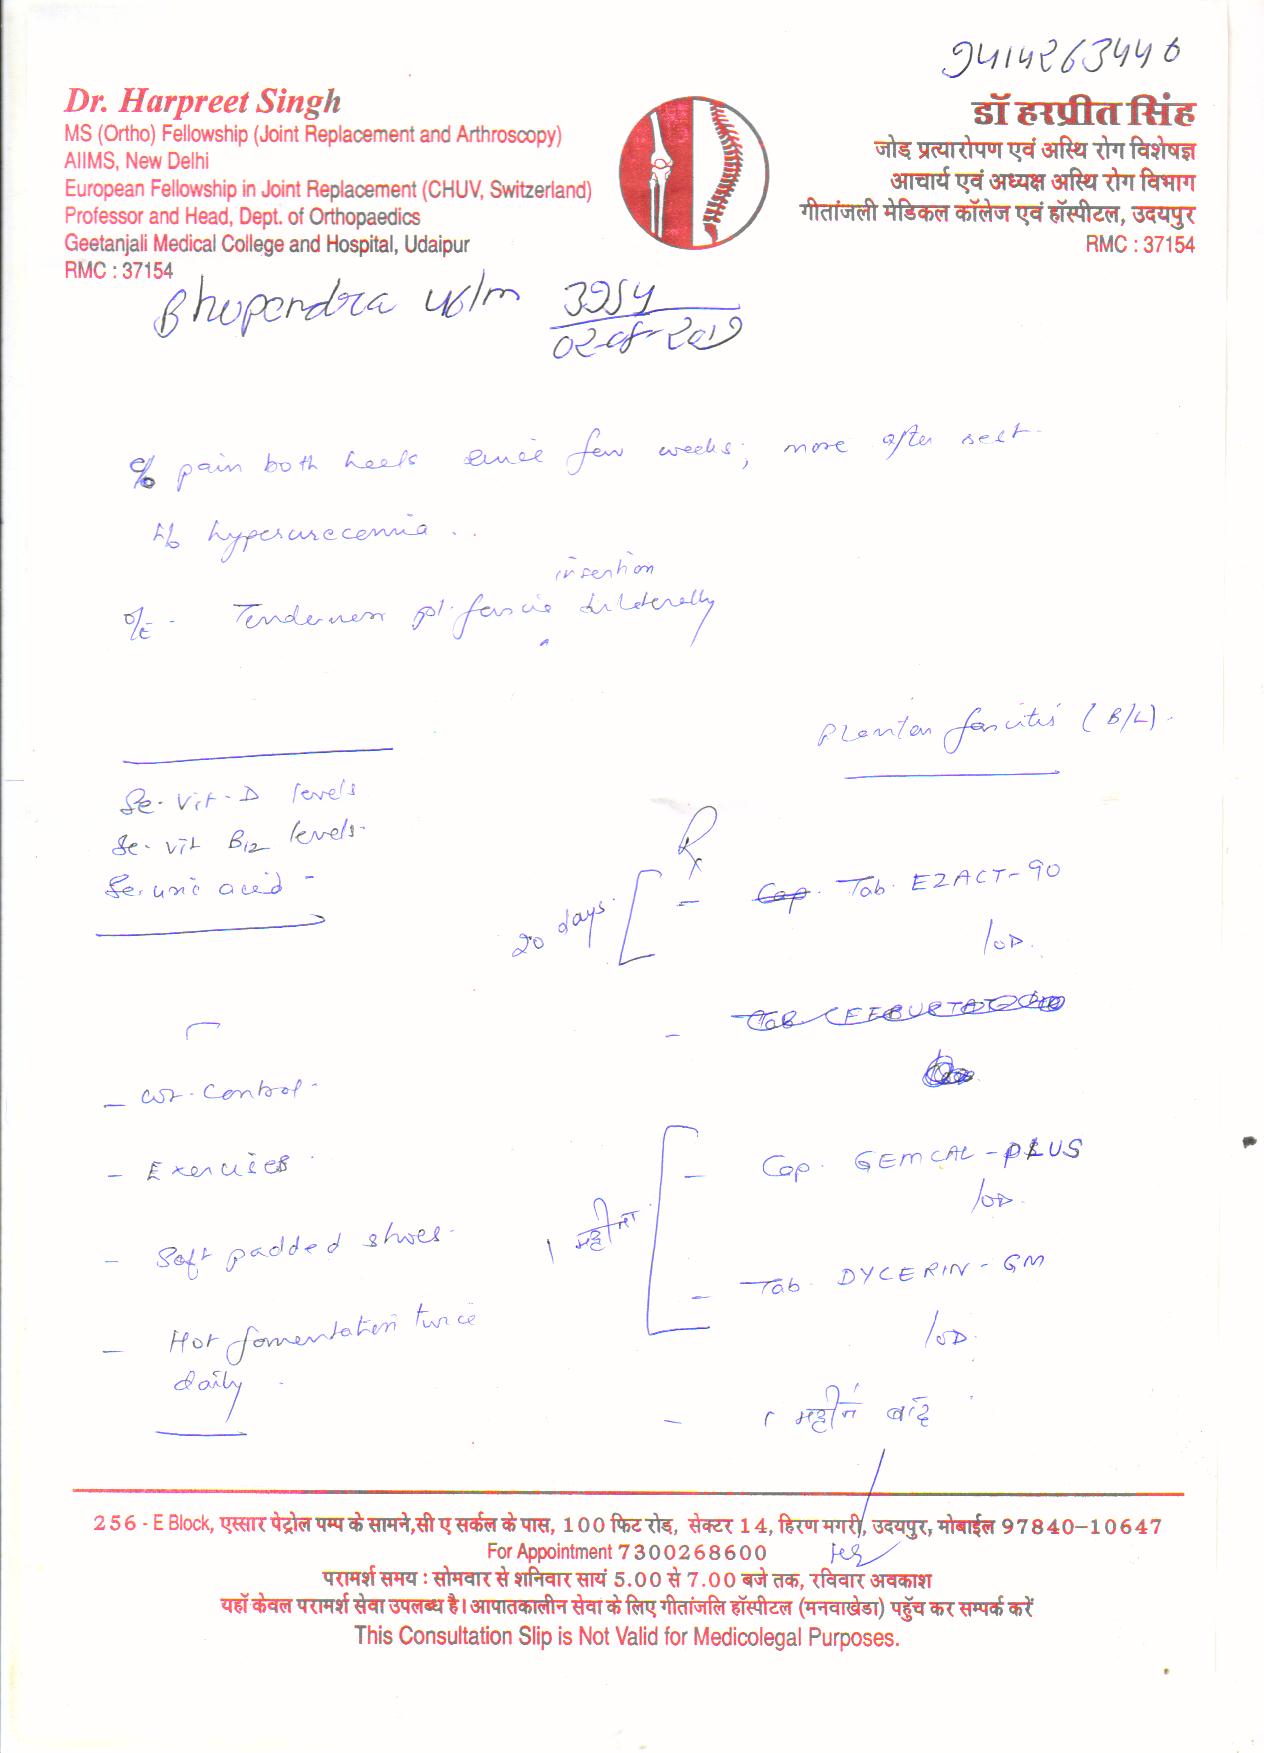 9414263446
Dr. Harpreet Singh
MS (Ortho) Fellowship (Joint Replacement and Arthroscopy)
AIIMS, New Delhi
European Fellowship in Joint Replacement (CHUV, Switzerland)
Professor and Head, Dept. of Orthopaedics
Geetanjali Medical College and Hospital, Udaipur
RMC : 37154
डॉ हरप्रीत सिंह
जोड़ प्रत्यारोपण एवं अस्थि रोग विशेषज्ञ
आचार्य एवं अध्यक्ष अस्थि रोग विभाग
गीतांजली मेडिकल कॉलेज एवं हॉस्पीटल, उदयपुर
RMC : 37154
Bhupendra 46/m 3954
02-08-2019
c/o pain both heels since few weeks; more after rest.
H/o hyperurecemia ..
insertion
o/E - Tenderness pl. fascia bilaterally
Plantar fascitis (B/L).
Se. Vit-D levels
Se. vit B12 levels.
Se. uric acid -
Rx
20 days
- Cap. Tab. EZACT-90
1 OD.
- Tab
- wt. control.
- Exercises.
- Soft padded shoes.
- Hot fomentation twice
daily.
1 महीना
- Cap. GEMCAL-PLUS
1 OD.
- Tab. DYCERIN-GM
1 OD.
- 1 महीने बाद
256 - E Block, एस्सार पेट्रोल पम्प के सामने,सी ए सर्कल के पास, 100 फिट रोड, सेक्टर 14, हिरण मगरी, उदयपुर, मोबाईल 97840-10647
For Appointment 7300268600
परामर्श समय : सोमवार से शनिवार सायं 5.00 से 7.00 बजे तक, रविवार अवकाश
यहाँ केवल परामर्श सेवा उपलब्ध है। आपातकालीन सेवा के लिए गीतांजलि हॉस्पीटल (मनवाखेडा) पहुँच कर सम्पर्क करें
This Consultation Slip is Not Valid for Medicolegal Purposes.